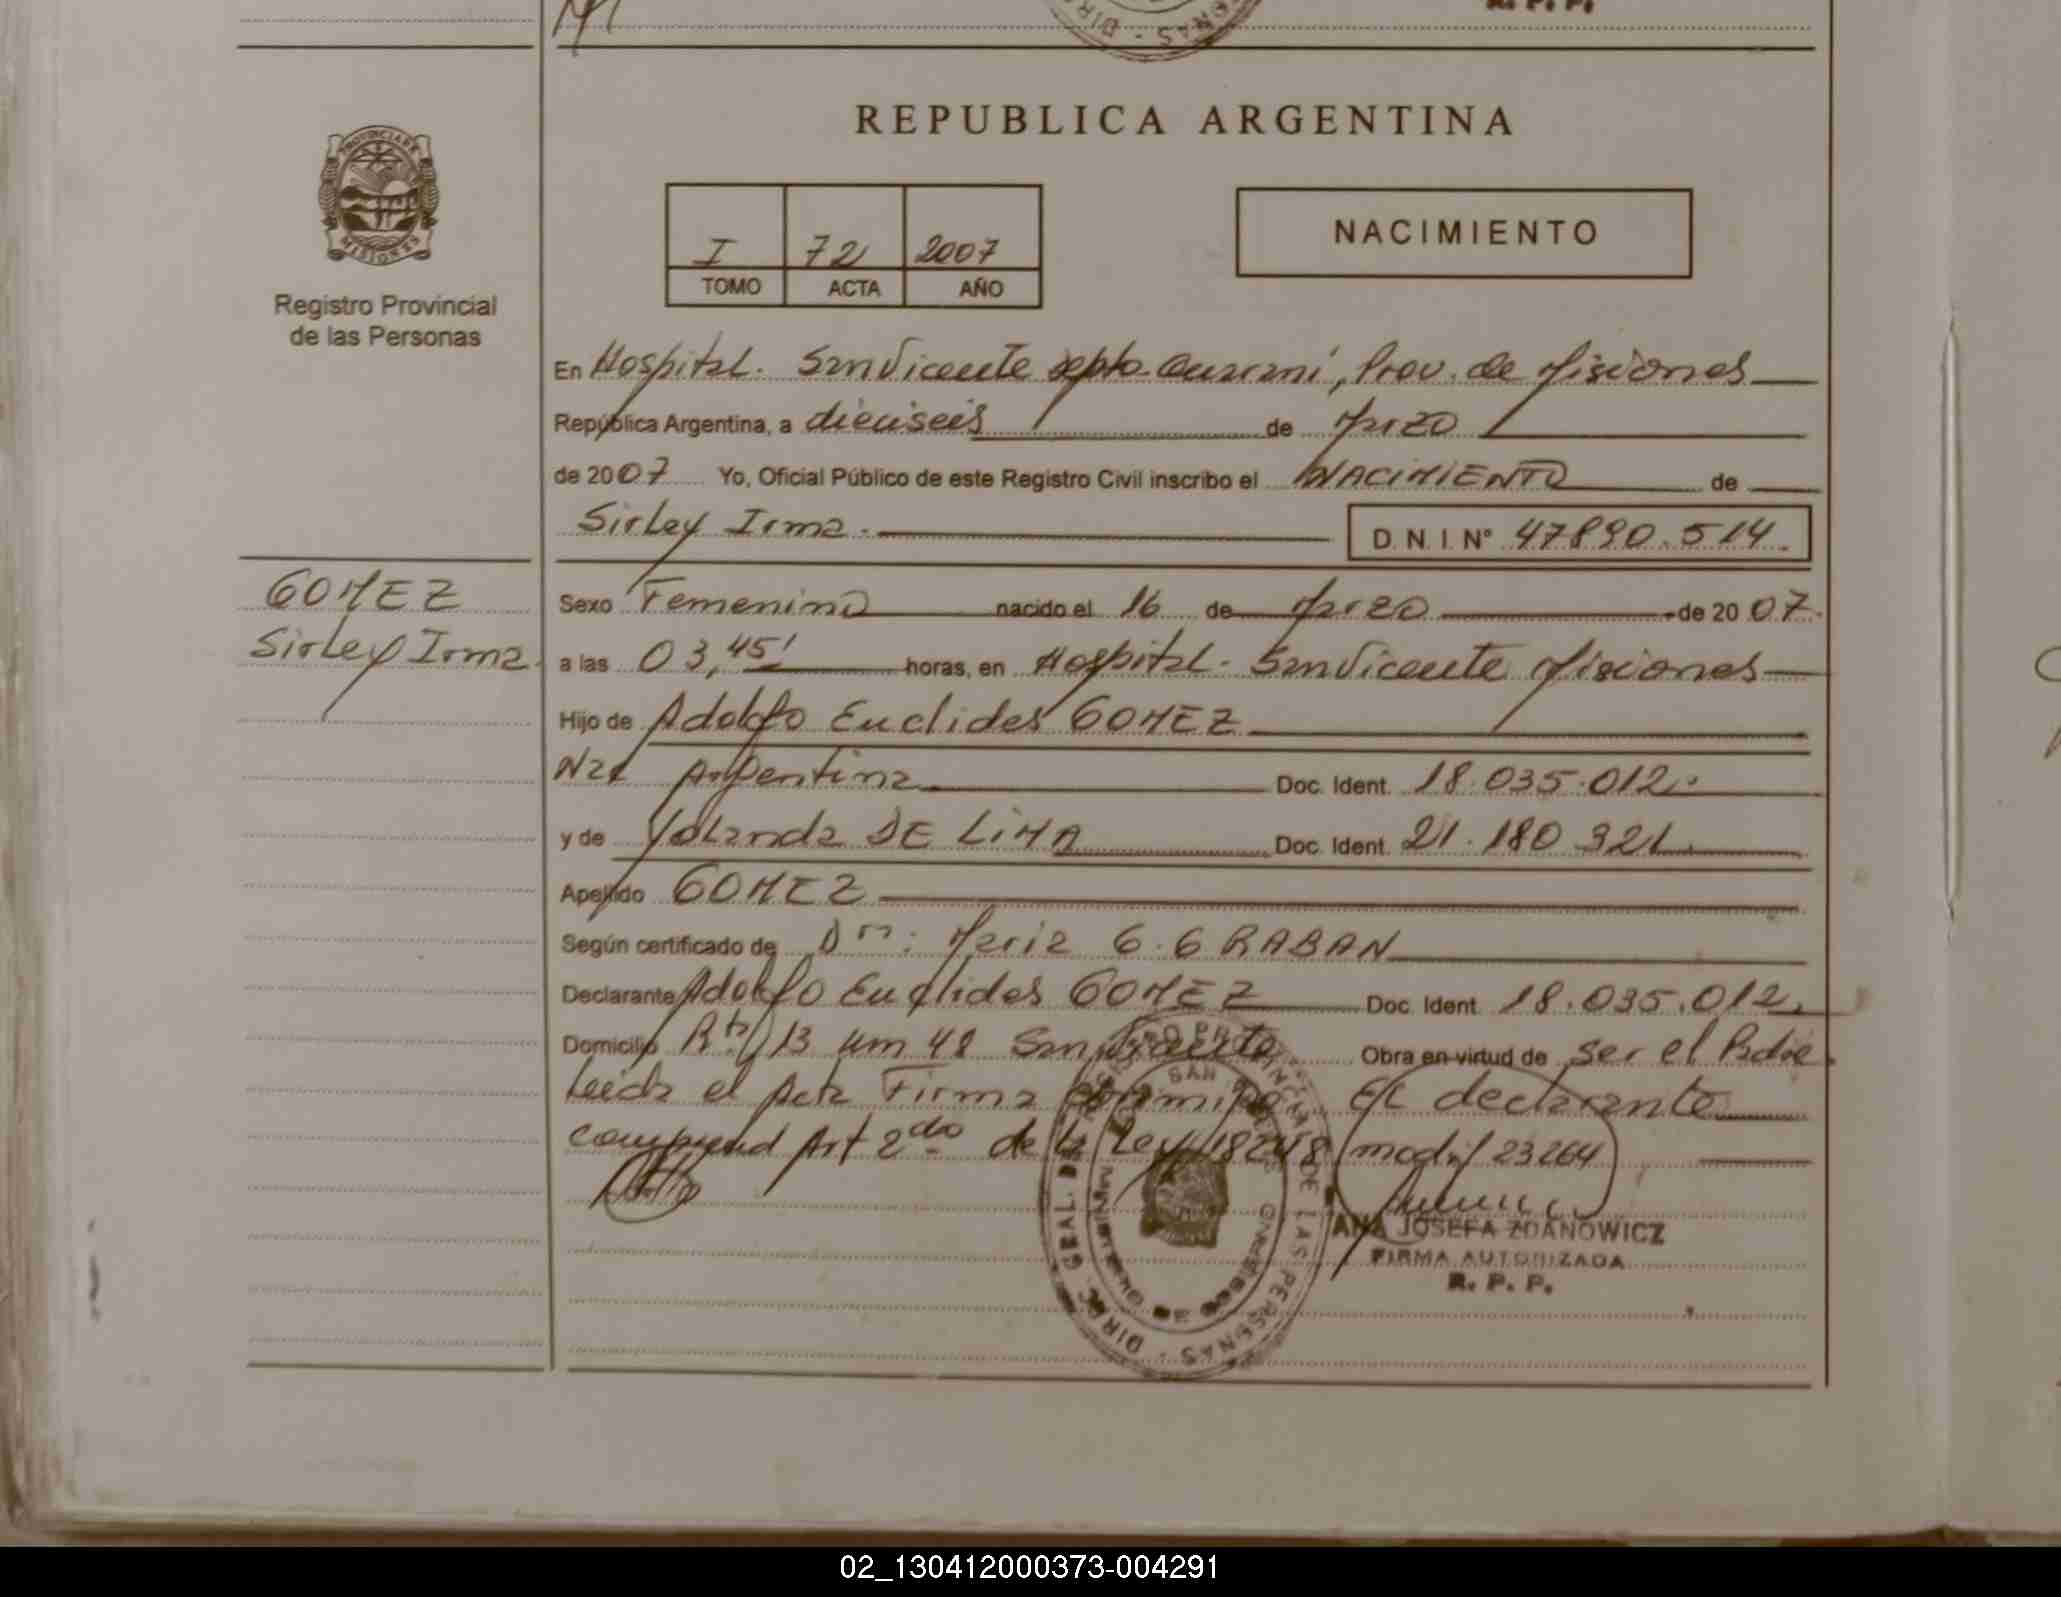 R. P. P.
REPUBLICA ARGENTINA
PROVINCIA DE
MISIONES
Registro Provincial
de las Personas
I 72 2007
TOMO ACTA AÑO
NACIMIENTO
En Hospital. San Vicente Depto. Guarani, Prov. de Misiones
República Argentina, a dieciseis de Marzo
de 2007 Yo, Oficial Público de este Registro Civil inscribo el NACIMIENTO de
Sirley Irma.
D. N. I. Nº 47890.514.
GOMEZ
Sirley Irma
Sexo Femenino nacido el 16 de Marzo de 2007.
a las 03,45' horas, en Hospital. San Vicente Misiones
Hijo de Adolfo Euclides GOMEZ
Nac Argentina Doc. Ident. 18.035.012.
y de Yolanda DE LIMA Doc. Ident. 21.180 321
Apellido GOMEZ
Según certificado de Dra: Maria G. GRABAN
Declarante Adolfo Euclides GOMEZ Doc. Ident. 18.035.012.
Domicilio Rta 13 Km 48 San Vicente Obra en virtud de ser el Padre.
Leida el Acta Firma conmigo El declarante
comprend Art 2do de la Ley 18248 modif 23264
DIREC. GRAL. DEL REGISTRO PROVINCIAL DE LAS PERSONAS
SAN
ANA JOSEFA ZDANOWICZ
FIRMA AUTORIZADA
R. P. P.
02_130412000373-004291